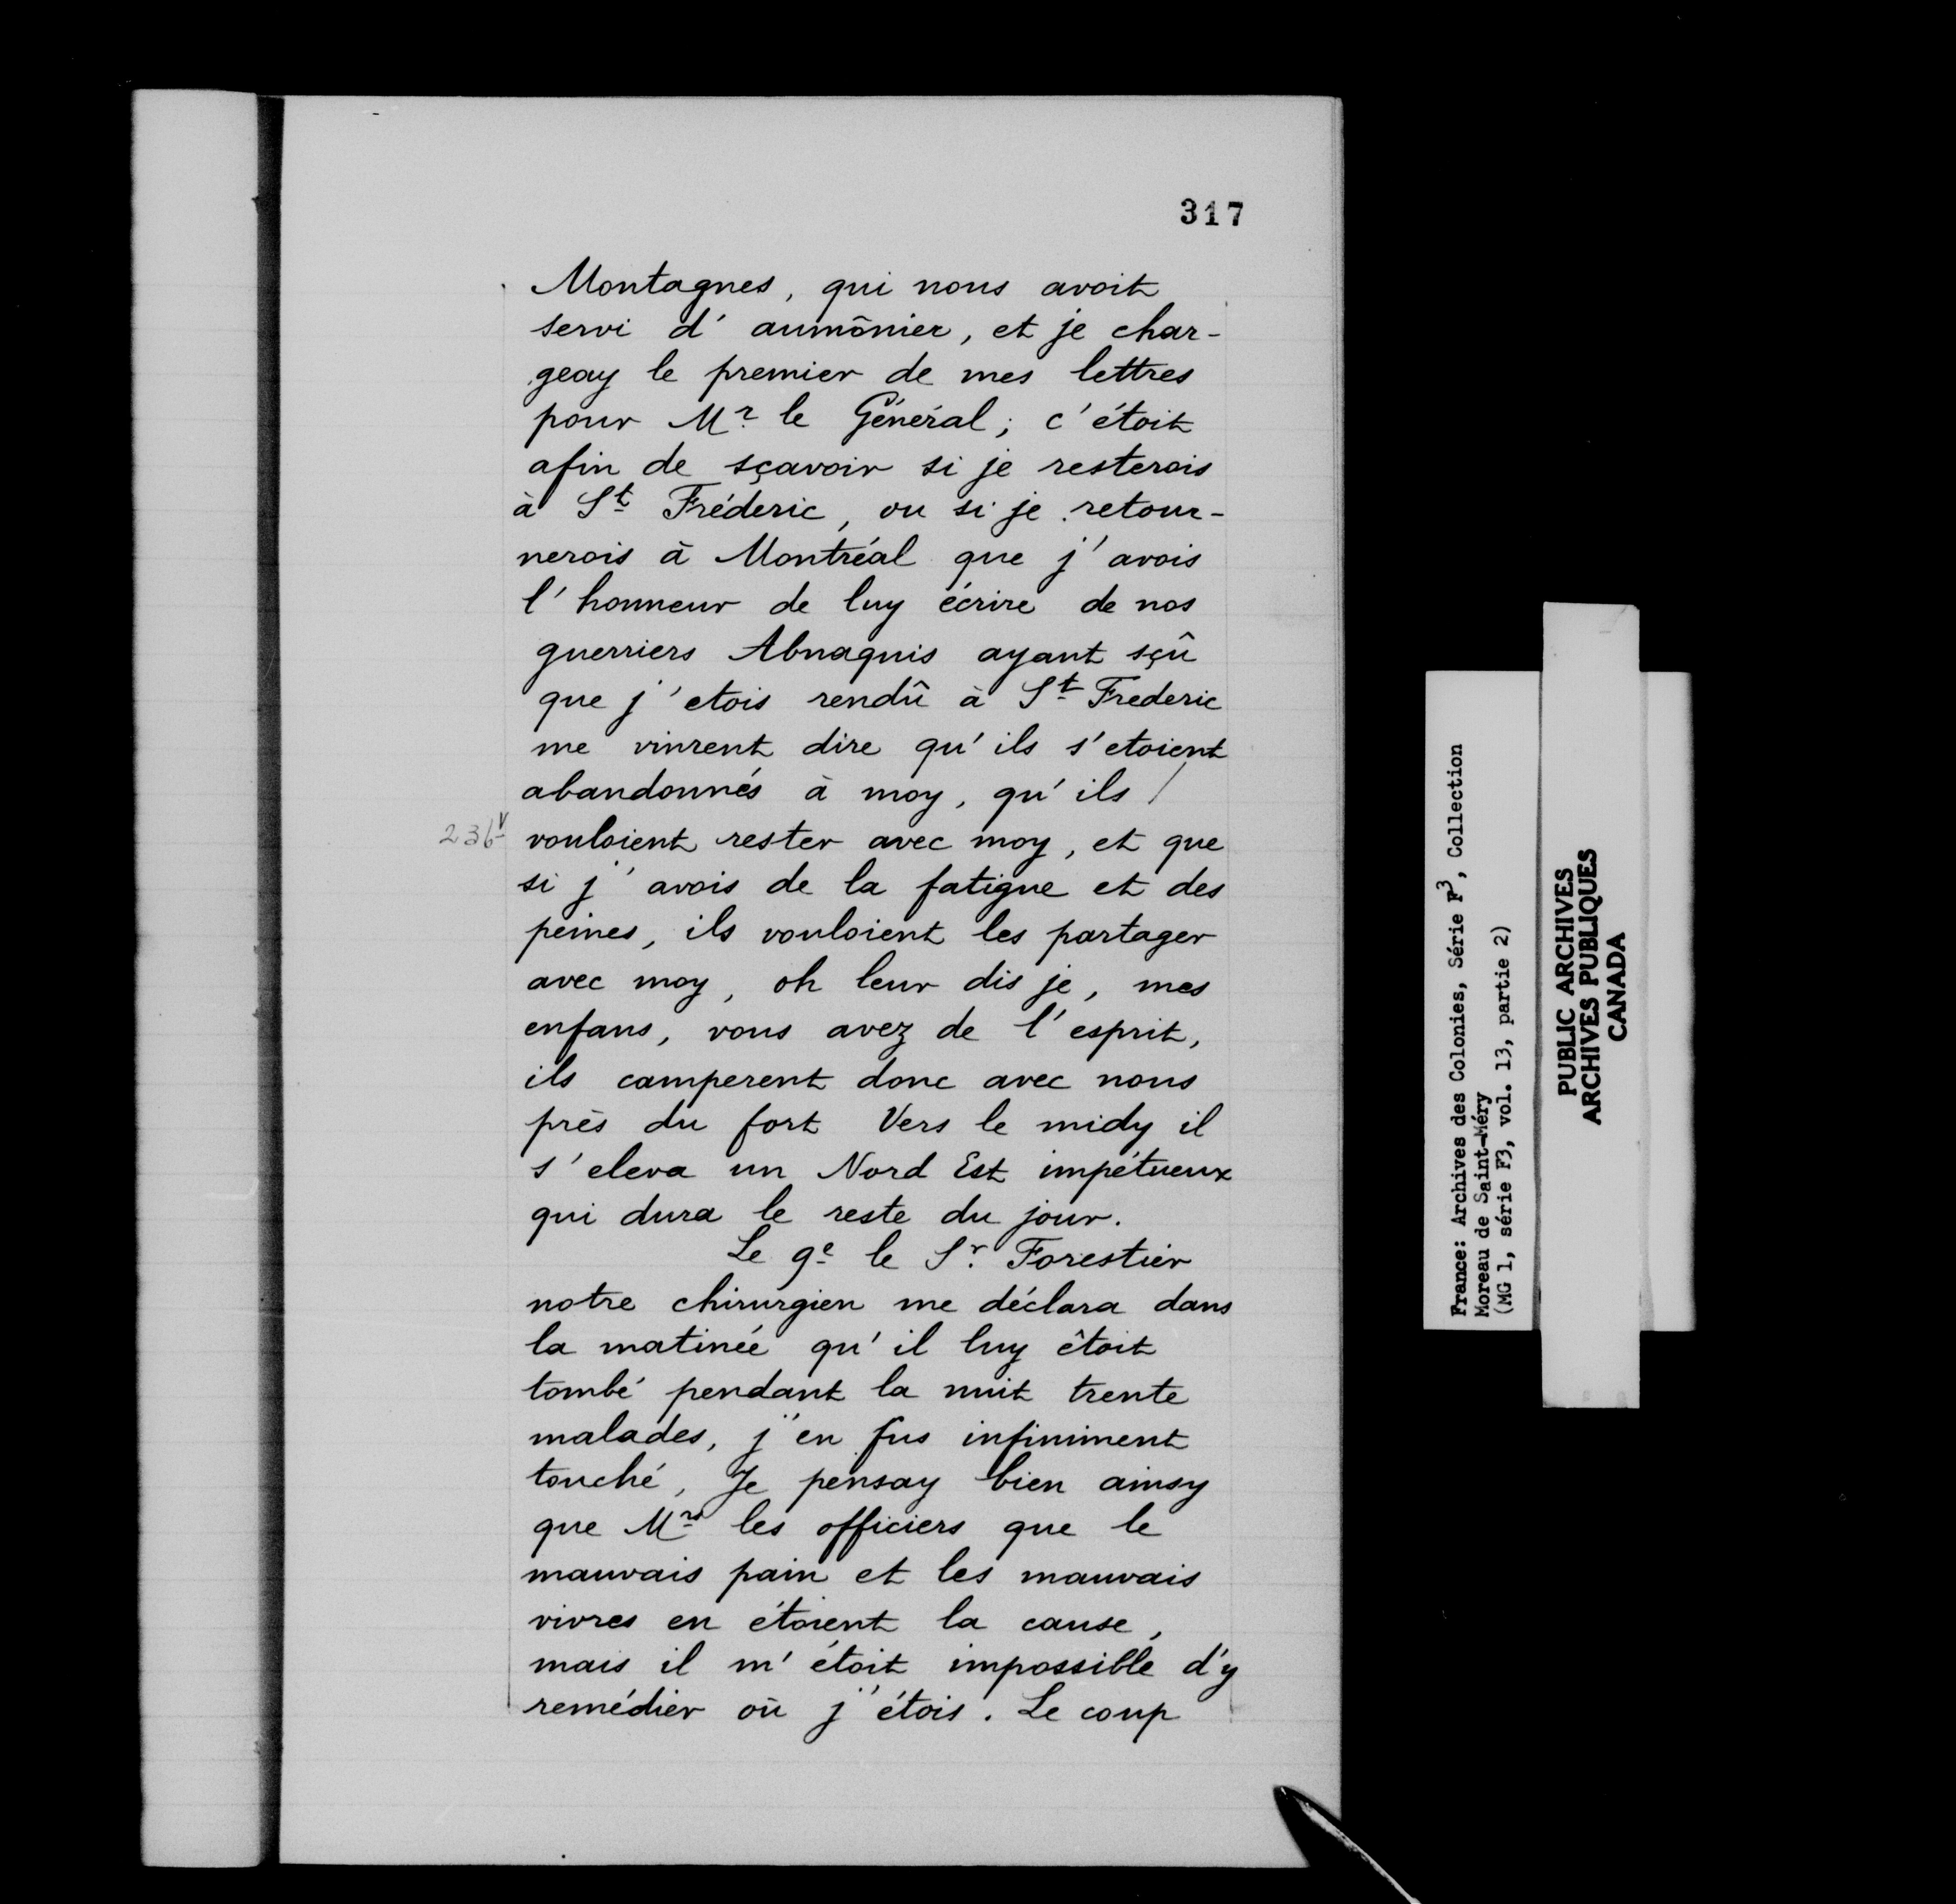 317
Montagnes, qui nous avoit
servi d'aumônier, et je char-
geay le premier de mes lettres
pour Mr. le Général; c'étoit
afin de sçavoir si je resterois
à St Fréderic, ou si je retour-
nerois à Montréal que j'avois
l'honneur de luy écrire de nos
guerriers Abnaquis ayant sçû
que j'etois rendû à St Frederic
me vinrent dire qu'ils s'etoient
abandonnés à moy, qu'ils /
236v vouloient rester avec moy, et que
si j'avois de la fatigue et des
peines, ils vouloient les partager
avec moy, oh leur dis je, mes
enfans, vous avez de l'esprit,
ils camperent donc avec nous
près du fort Vers le midy il
s'eleva un Nord Est impétueux
qui dura le reste du jour.
Le 9e le Sr. Forestier
notre chirurgien me déclara dans
la matinée qu'il luy êtoit
tombé pendant la nuit trente
malades, j'en fus infiniment
touché, Je pensay bien ainsy
que Mrs les officiers que le
mauvais pain et les mauvais
vivres en étoient la cause,
mais il m'étoit impossible d'y
remédier où j'étois. Le coup
France: Archives des Colonies, Série F3, Collection
Moreau de Saint-Méry
(MG 1, série F3, vol. 13, partie 2)
PUBLIC ARCHIVES
ARCHIVES PUBLIQUES
CANADA